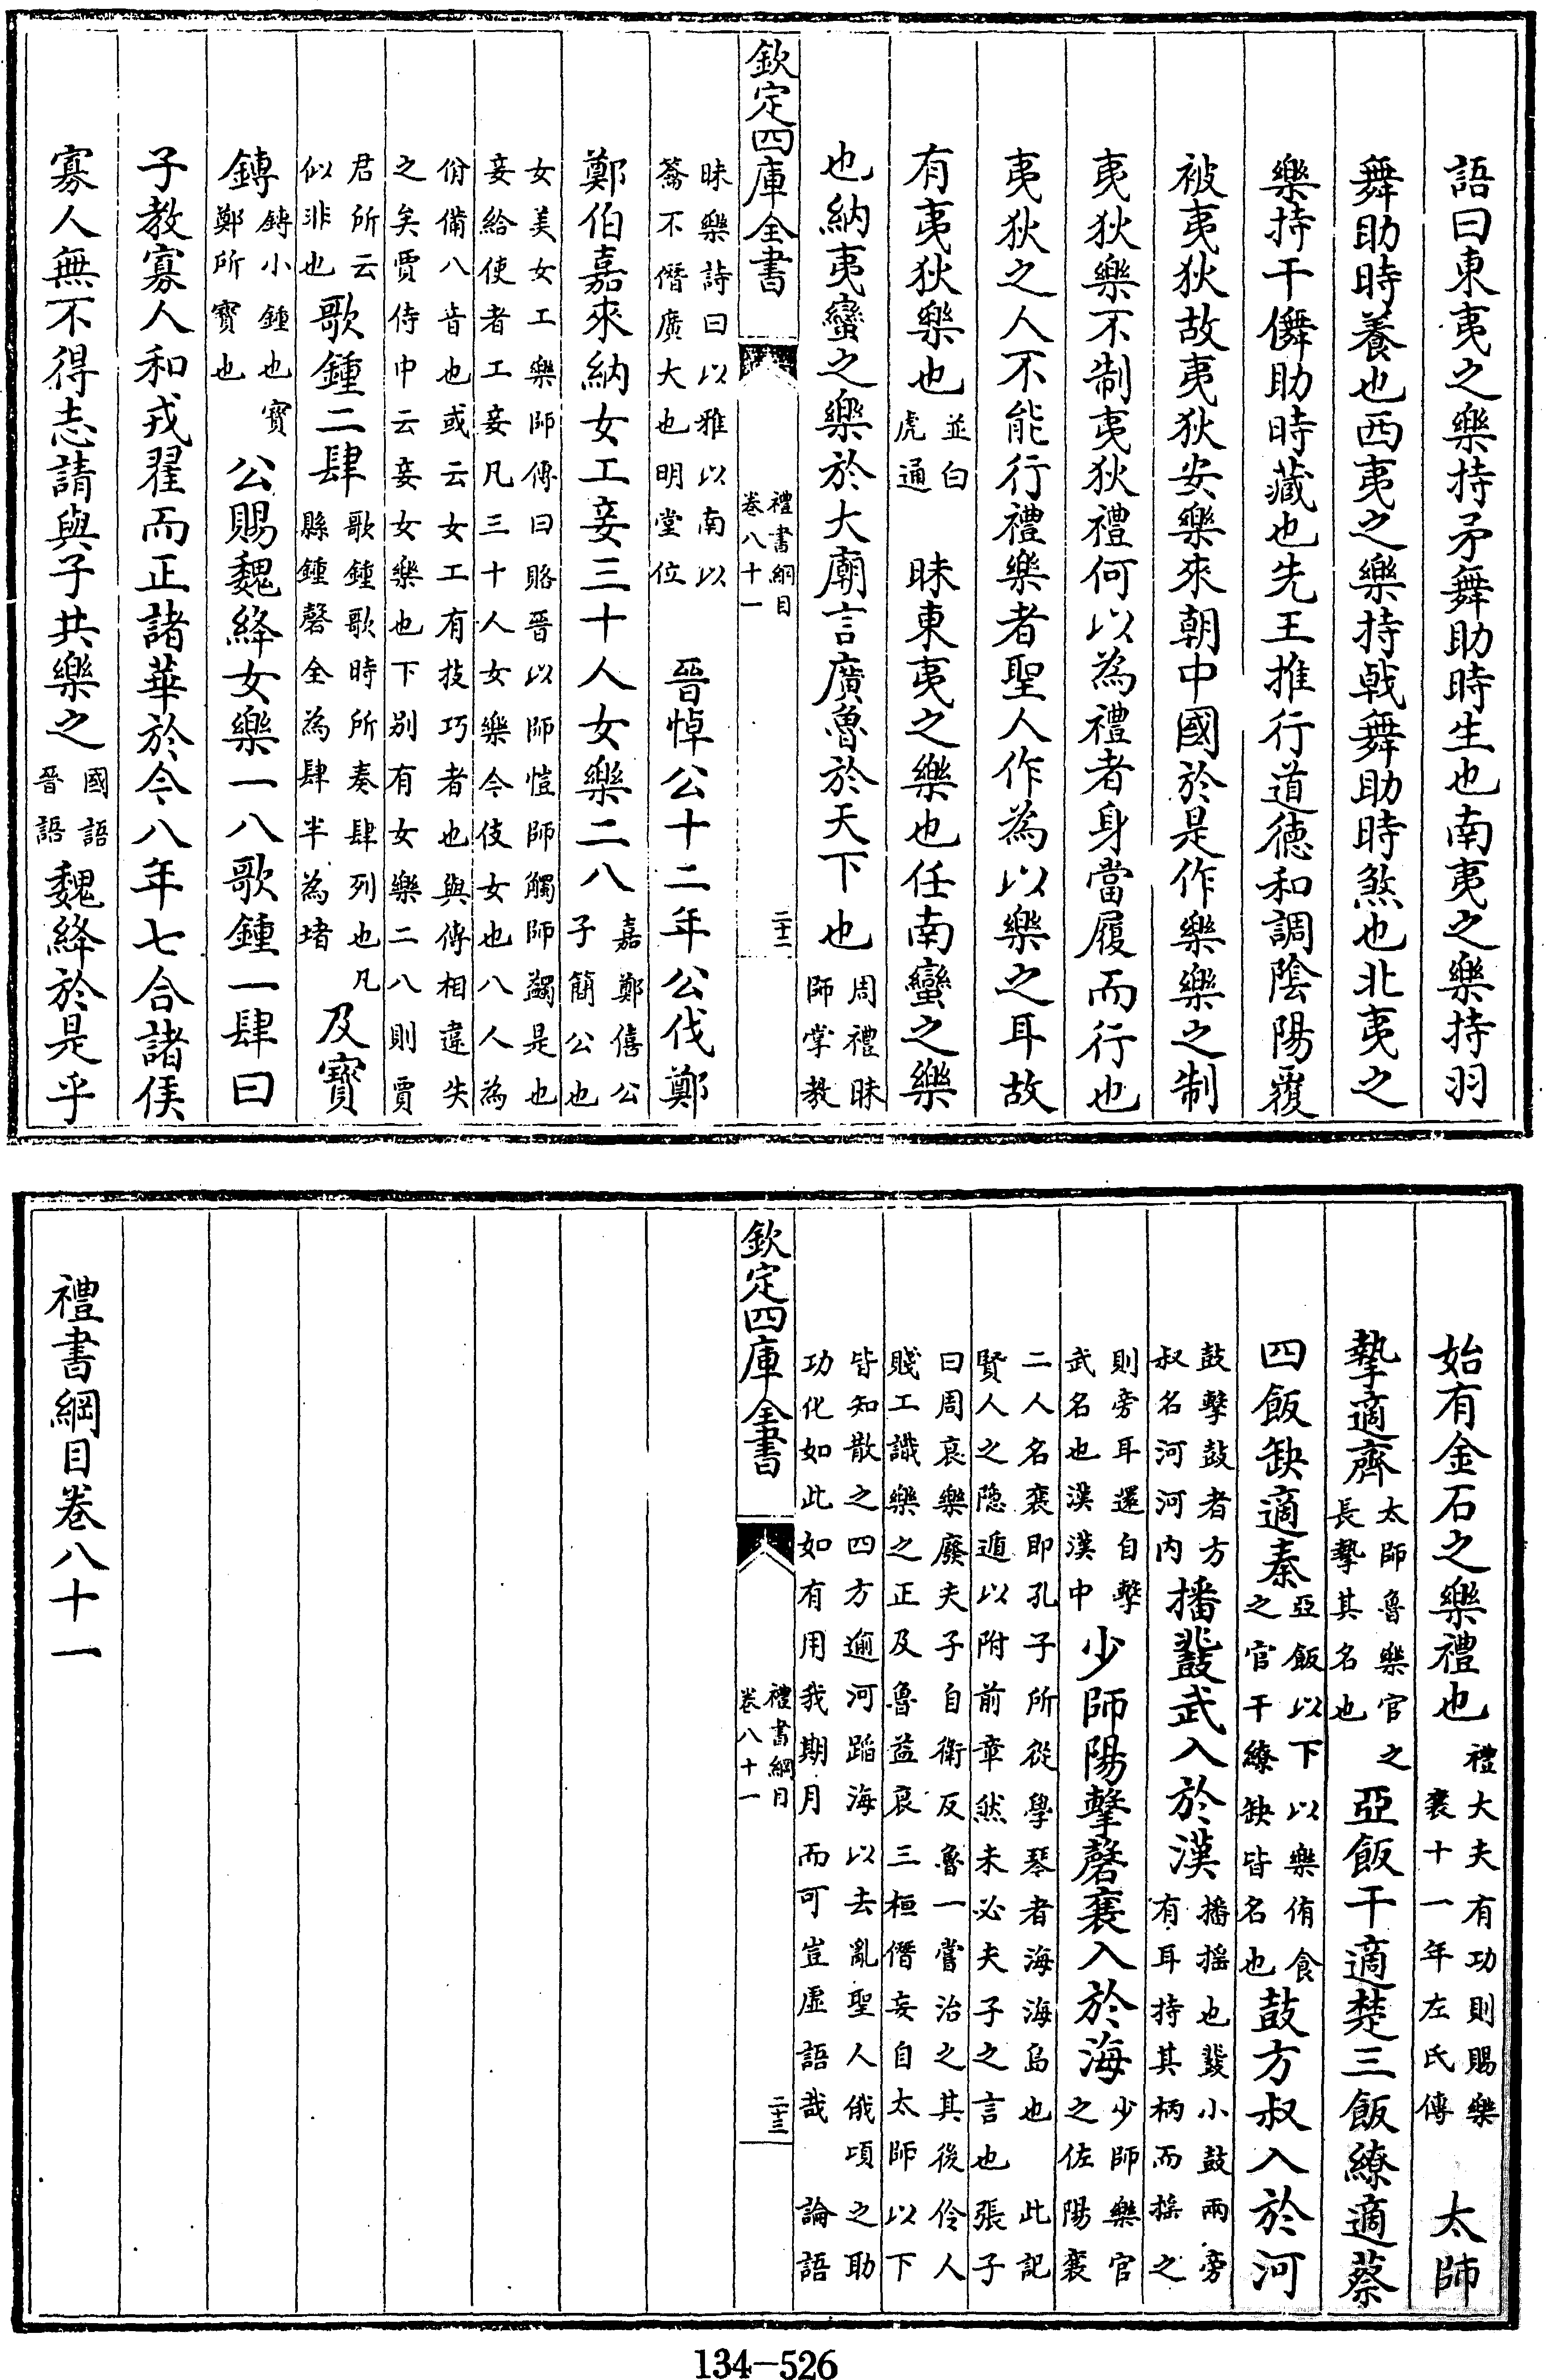 語曰東夷之樂持矛舞助時生也南夷之樂持羽
舞助時養也西夷之樂持戟舞助時煞也北夷之
樂持干儛助時藏也先王推行道德和調陰陽覆
被夷狄故夷狄安樂來朝中國於是作樂樂之制
夷狄樂不制夷狄禮何以為禮者身當履而行也
夷狄之人不能行禮樂者聖人作為以樂之耳故
有夷狄樂也並白虎通 昧東夷之樂也任南蠻之樂
也納夷蠻之樂於大廟言廣魯於天下也周禮昧師掌教
欽定四庫全書 禮書綱目卷八十一 二十二
昧樂詩曰以雅以南以籥不僭廣大也明堂位 晉悼公十二年公伐鄭
鄭伯嘉來納女工妾三十人女樂二八嘉鄭僖公子簡公也
女美女工樂師傳曰賂晉以師悝師觸師蠲是也妾給使者工妾凡三十人女樂今伎女也八人為
佾備八音也或云女工有技巧者也與傳相違失之矣賈侍中云妾女樂也下别有女樂二八則賈
君所云似非也歌鍾二肆歌鍾歌時所奏肆列也凡縣鍾磬全為肆半為堵及寶
鎛鎛小鍾也寶鄭所寶也公賜魏絳女樂一八歌鍾一肆曰
子教寡人和戎翟而正諸華於今八年七合諸侯
寡人無不得志請與子共樂之國語晉語魏絳於是乎
始有金石之樂禮也禮大夫有功則賜樂襄十一年左氏傳 太師
摯適齊太師魯樂官之長摯其名也亞飯干適楚三飯繚適蔡
四飯缺適秦亞飯以下以樂侑食之官干繚缺皆名也鼓方叔入於河
鼓擊鼓者方叔名河河内播鼗武入於漢播摇也鼗小鼓兩旁有耳持其柄而摇之
則旁耳還自擊武名也漢漢中少師陽擊磬襄入於海少師樂官之佐陽襄
二人名襄即孔子所從學琴者海海島也 此記賢人之隐遁以附前章然未必夫子之言也張子
曰周衰樂廢夫子自衛反魯一嘗治之其後伶人賤工識樂之正及魯益衰三桓僭妄自太師以下
皆知散之四方逾河蹈海以去亂聖人俄頃之助功化如此如有用我期月而可豈虛語哉 論語
欽定四庫全書 禮書綱目卷八十一 二十三
禮書綱目卷八十一
134-526